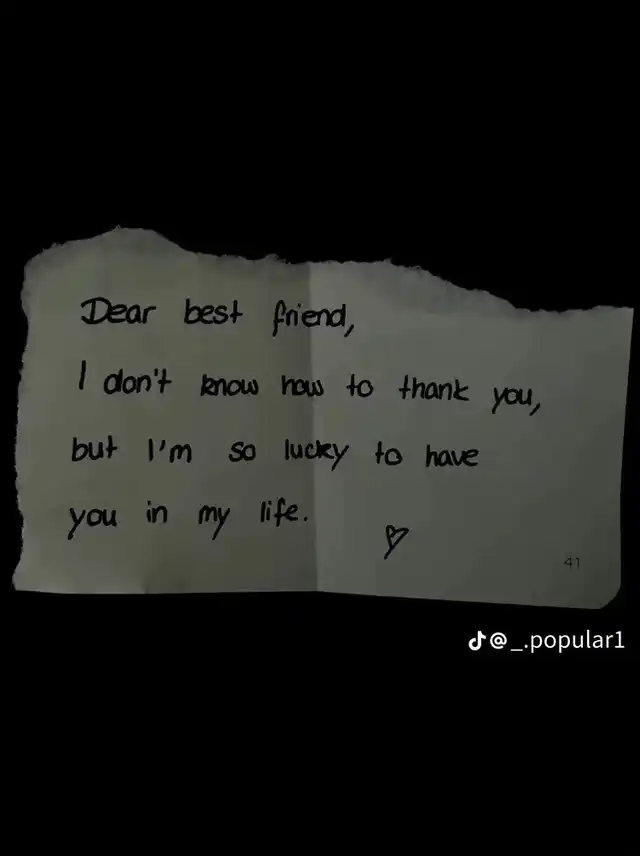 Dear best friend,
I don't know how to thank you,
but I'm so lucky to have
you in my life.
41
@_.popular1